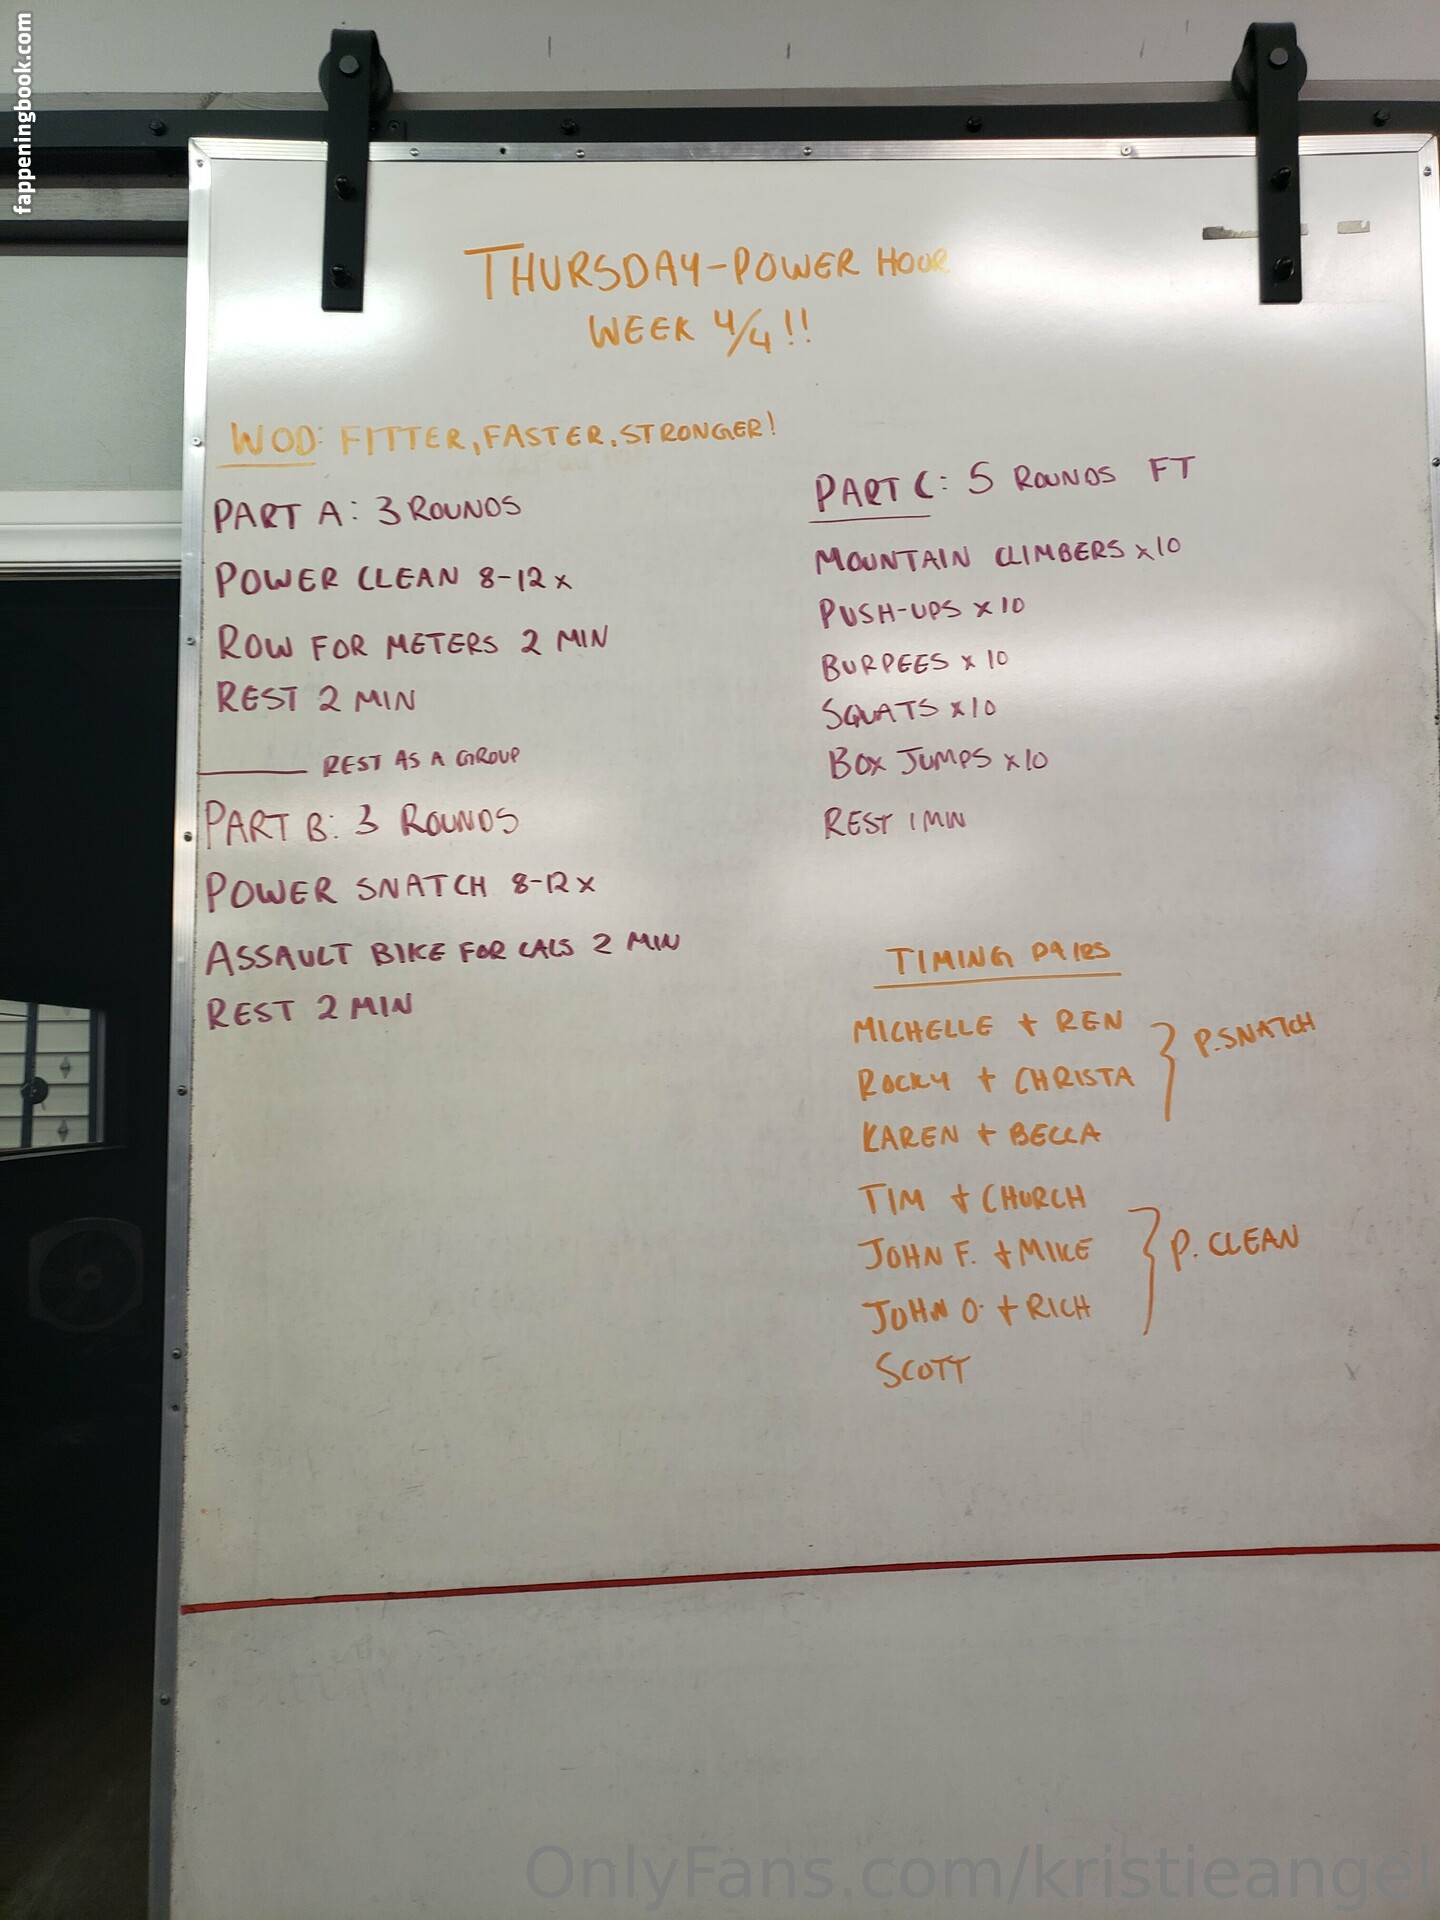 fappeningbook.com
THURSDAY-POWER HOUR
WEEK 4/4!!
WOD: FITTER, FASTER, STRONGER!
PART A: 3 ROUNDS
POWER CLEAN 8-12x
ROW FOR METERS 2 MIN
REST 2 MIN
REST AS A GROUP
PART B: 3 ROUNDS
POWER SNATCH 8-12x
ASSAULT BIKE FOR CALS 2 MIN
REST 2 MIN
PART C: 5 ROUNDS FT
MOUNTAIN CLIMBERS x10
PUSH-UPS x10
BURPEES x10
SQUATS x10
BOX JUMPS x10
REST 1 MIN
TIMING PAIRS
MICHELLE + REN
ROCKY + CHRISTA
KAREN + BECCA
P.SNATCH
TIM + CHURCH
JOHN F. + MIKE
JOHN O. + RICH
P. CLEAN
SCOTT
OnlyFans.com/kristieangel